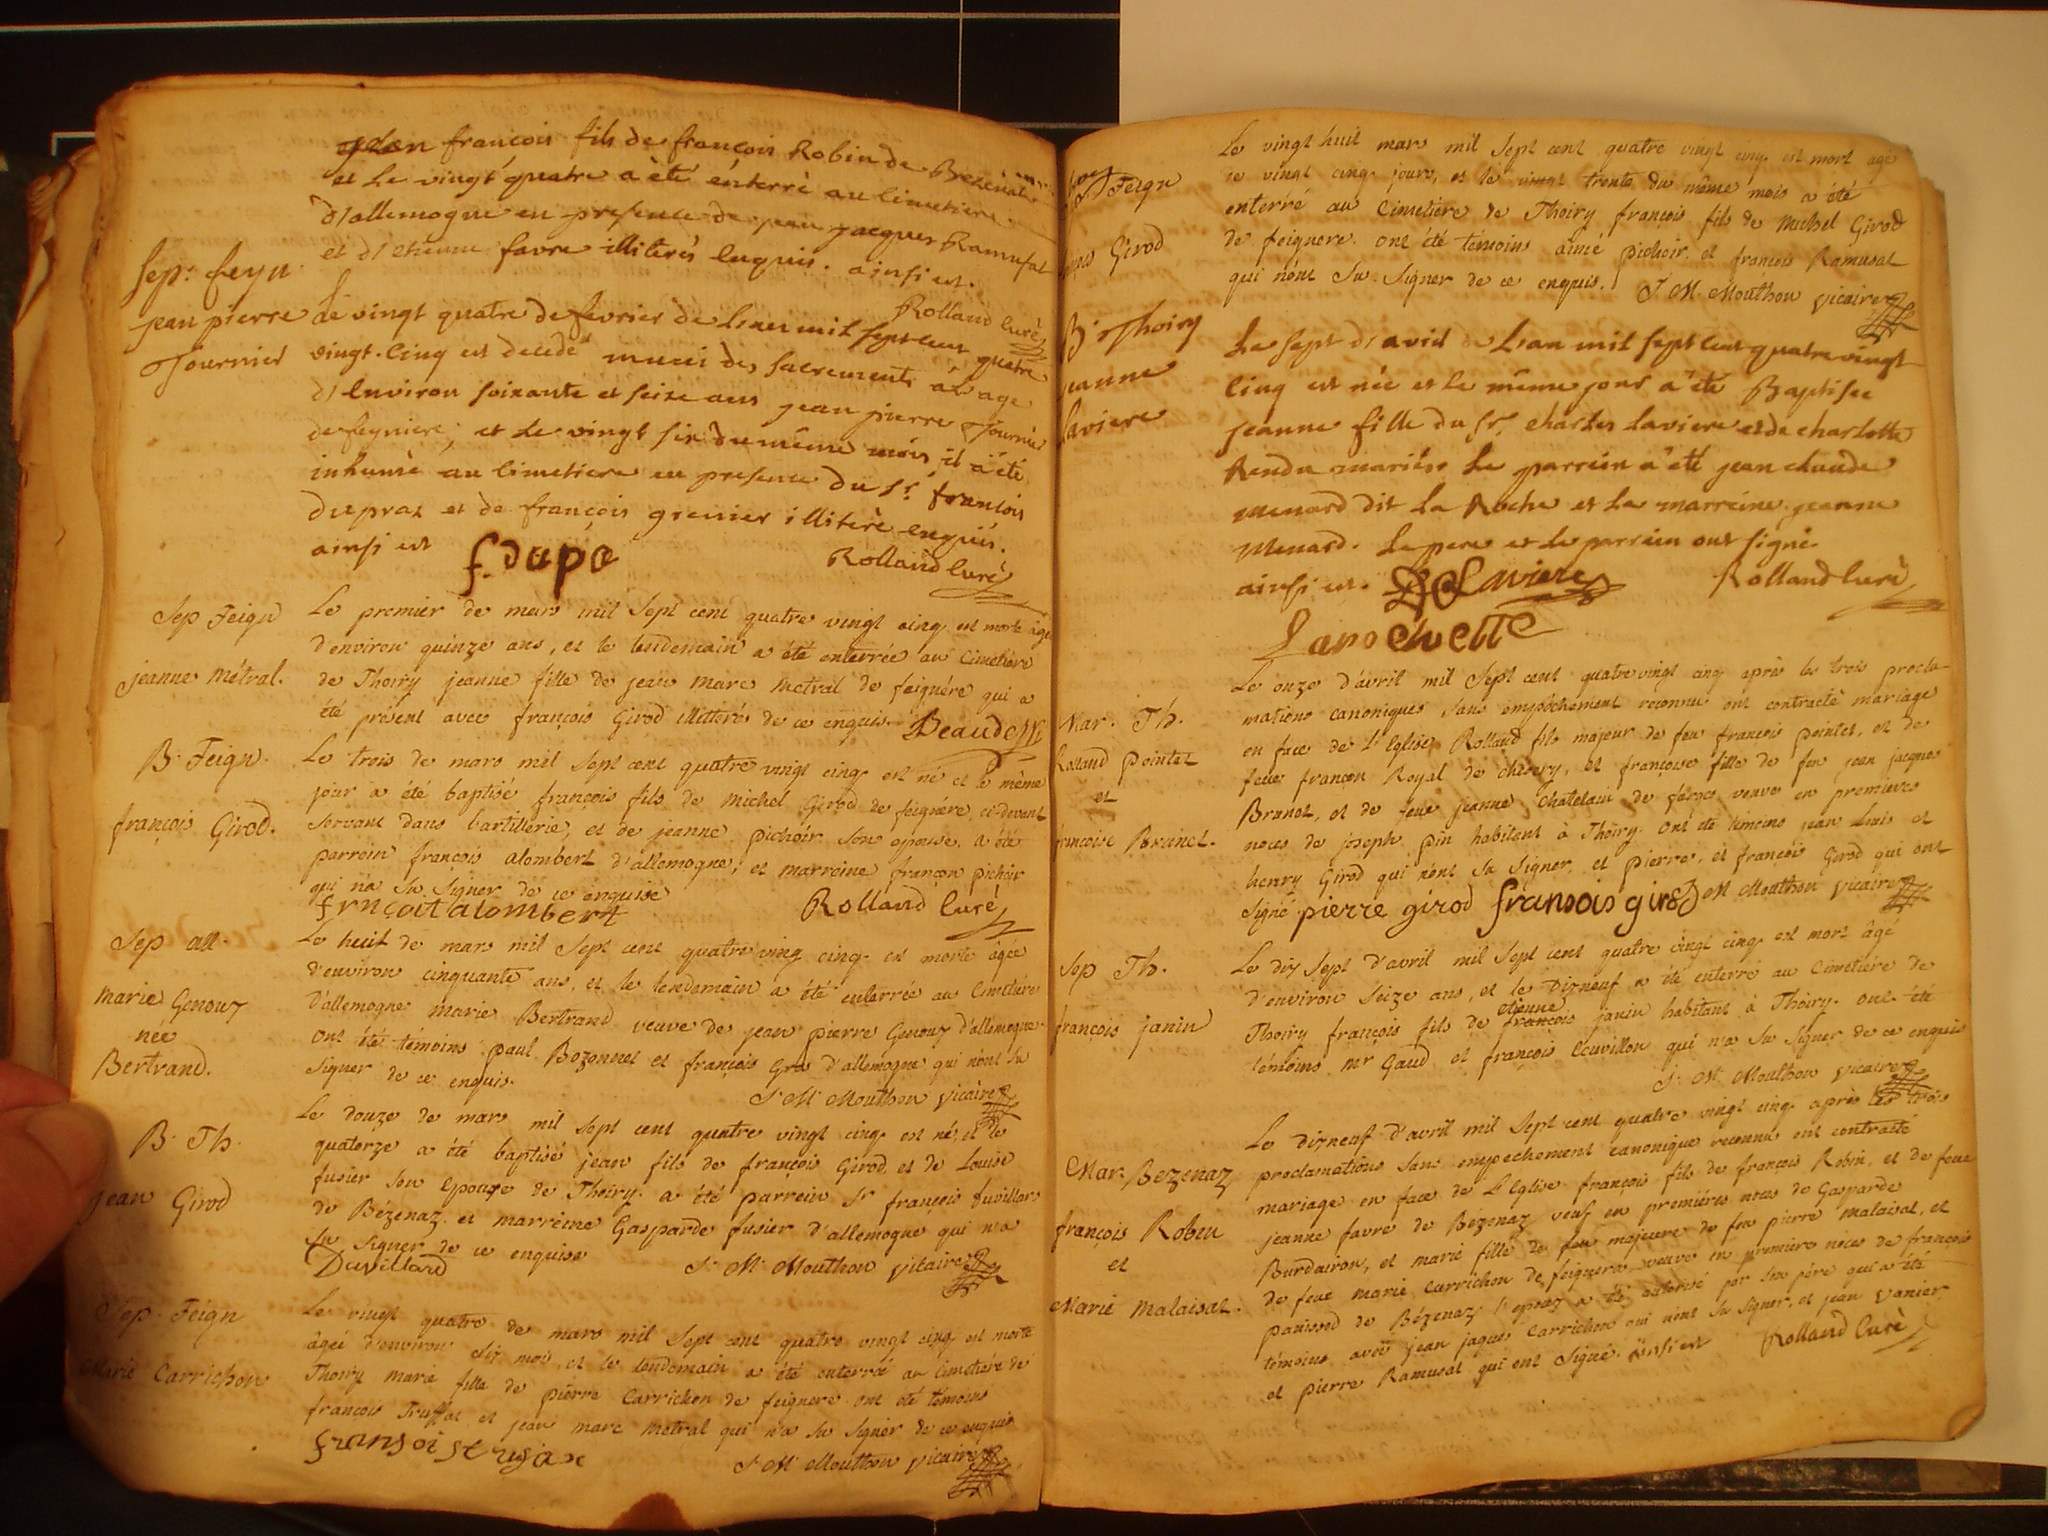 jean françois fils de françois Robin de Bezenaz
et le vingt quatre a èté énterrè au cimetiere
d'allemogne en presence de jean jacques Ramusat
et d'etienne favre illiterés enquis. ainsi est.
Rolland curè
Sep: feyn.
jean pierre
Tournier
Le vingt quatre de fevrier de l'an mil sept cent quatre
vingt-cinq est decedé muni des sacrements á l'age
d'environ soixante et seize ans jean pierre Tournier
de feyniere; et le vingt six du même mois, il a èté
inhumè au cimetiere en presence du Sr. françois
Dupraz et de françois grenier illiterè enquis.
ainsi est
f. dupa
Rolland curè
Sep Feign
jeanne Métral.
Le premier de mars mil sept cent quatre vingt cinq est morte agée
d'environ quinze ans, et le lendemain a été enterrée au cimetière
de Thoiry jeanne fille de jean Marc Metral de feignére qui a
été présent avec françois Girod illitterés de ce enquis.
B. Feign.
françois Girod.
Le trois de mars mil sept cent quatre vingt cinq est né et le même
jour a été baptisé françois fils de Michel Girod de feignére, ci-devant
servant dans l'artillerie, et de jeanne pichoir son epouse. a été
parrein françois alombert d'allemogne, et marreine françon pichoir
qui n'a su signer de ce enquise
françoit alombert
Rolland curè
Sep all.
Marie Genouz
née
Bertrand.
Le huit de mars mil sept cent quatre ving cinq est morte âgée
d'environ cinquante ans, et le lendemain a été enterrée au cimetière
d'allemogne Marie Bertrand veuve de jean pierre Genouz d'allemogne.
ont été témoins paul Bozonnet et françois Gros d'allemogne qui n'ont su
signer de ce enquis.
J. M. Mouthon vicaire
B. Th.
jean Girod
Le douze de mars mil sept cent quatre vingt cinq est né, et le
quatorze a été baptisé jean fils de françois Girod et de Louise
fusier son epouse de Thoiry. a été parrein Sr françois Duvillard
de Bézenaz. et marreine Gasparde fusier d'allemogne qui n'a
su signer de ce enquise
Duvillard
J. M. Mouthon vicaire
Sep. Feign
Marie Carrichon
Le vingt quatre de mars mil sept cent quatre vingt cinq est morte
âgée d'environ dix mois, et le lendemain a été enterrée au cimetière de
Thoiry Marie fille de pierre Carrichon de feignere. ont été témoins
françois Truffat et jean marc metral qui n'a su signer de ce enquis
J. M. Mouthon vicaire
Feign
Girod
Le vingt huit mars mil sept cent quatre vingt cinq est mort agé
de vingt cinq jours, et le vingt trente du même mois a été
enterré au cimetière de Thoiry françois fils de Michel Girod
de feignere. ont été témoins aimé pichoir et françois Ramusat
qui n'ont su signer de ce enquis.
J. M. Mouthon vicaire
B. Thoiry
jeanne
Laviere
Le sept d'avril de l'an mil sept cent quatre vingt
cinq est née et le même jour a èté Baptisée
jeanne fille du Sr. charles Laviere et de charlotte
Rendu mariés. Le parrein a èté jean claude
Menard dit La Roche et la marreine jeanne
Menard. Le pere et le parrein ont signé.
ainsi est.
Laviere
Rolland curè
Mar. Th.
Rolland Pointet
et
françoise Brunet.
Le onze d'avril mil sept cent quatre vingt cinq après les trois procla-
mations canoniques sans empêchement reconnu ont contracté mariage
en face de l'Eglise Rolland fils majeur de feu françois pointet, et de
feue françon Royal de chevry, et françoise fille de feu jean jacques
Brunet, et de feue jeanne chatelain de farges veuve en premieres
noces de joseph pin habitant à Thoiry. Ont été témoins jean Luis et
henry Girod qui n'ont su signer, et pierre, et françois Girod qui ont
signé pierre girod fransois girod J M Mouthon vicaire
Sep Th.
françois janin
Le dix sept d'avril mil sept cent quatre vingt cinq est mort âgé
d'environ seize ans, et le dixneuf a été enterré au cimetière de
Thoiry françois fils de françois etienne janin habitant à Thoiry. ont été
témoins Mr Gaud et françois Ecuvillon qui n'a su signer de ce enquis
J. M. Mouthon vicaire
Mar. Bezenaz
françois Robin
et
Marie Malaisat.
Le dixneuf d'avril mil sept cent quatre vingt cinq après les trois
proclamations sans empechement canonique reconnu ont contracté
mariage en face de l'Eglise françois fils de françois Robin, et de feue
jeanne favre de Bézenaz veuf en premières noces de Gasparde
Burdairon, et marie fille de feu majeure de feu pierre Malaisat, et
de feue marie Carrichon de feignere veuve en premiere noces de françois
panissod de Bézenaz, l'epoux a été autorisé par son père qui a été
témoins avec jean jaques Carrichon qui n'ont su signer, et jean Vanier
et pierre Ramusat qui ont signé. ainsi est
Rolland curè